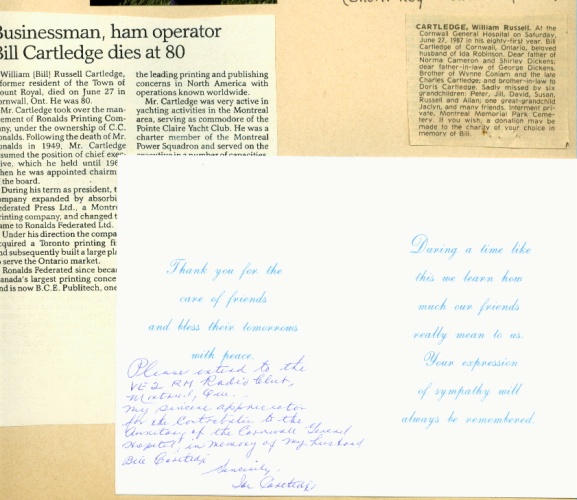 Businessman, ham operator
Bill Cartledge dies at 80
William (Bill) Russell Cartledge,
former resident of the Town of
Mount Royal, died on June 27 in
Cornwall, Ont. He was 80.
Mr. Cartledge took over the man-
ement of Ronalds Printing Com-
any, under the ownership of C.C.
onalds. Following the death of Mr.
onalds in 1949, Mr. Cartledge
sumed the position of chief exec-
ive, which he held until 196
hen he was appointed chairm
the board.
During his term as president, t
ompany expanded by absorbi
ederated Press Ltd., a Montre
rinting company, and changed t
ame to Ronalds Federated Ltd.
Under his direction the compa
cquired a Toronto printing fi
nd subsequently built a large pla
o serve the Ontario market.
Ronalds Federated since beca
anada's largest printing conce
nd is now B.C.E. Publitech, one
the leading printing and publishing
concerns in North America with
operations known worldwide.
Mr. Cartledge was very active in
yachting activities in the Montreal
area, serving as commodore of the
Pointe Claire Yacht Club. He was a
charter member of the Montreal
Power Squadron and served on the
executive in a number of capacities
CARTLEDGE, William Russell. At the
Cornwall General Hospital on Saturday,
June 27, 1987 in his eighty-first year. Bill
Cartledge of Cornwall, Ontario, beloved
husband of Ida Robinson. Dear father of
Norma Cameron and Shirley Dickens;
dear father-in-law of George Dickens.
Brother of Wynne Coniam and the late
Charles Cartledge; and brother-in-law to
Doris Cartledge. Sadly missed by six
grandchildren: Peter, Jill, David, Susan,
Russell and Allan; one great-grandchild
Jaclyn, and many friends. Interment pri-
vate, Montreal Memorial Park Ceme-
tery. If you wish, a donation may be
made to the charity of your choice in
memory of Bill.
Thank you for the
care of friends
and bless their tomorrows
with peace.
Please extend to the
VE2 RM Radio Club,
Montreal, Que.
my sincere appreciation
for the Contribution to the
Auxiliary of the Cornwall General
Hospital, in memory of my husband
Bill Cartledge
Sincerely,
Ida Cartledge
During a time like
this we learn how
much our friends
really mean to us.
Your expression
of sympathy will
always be remembered.